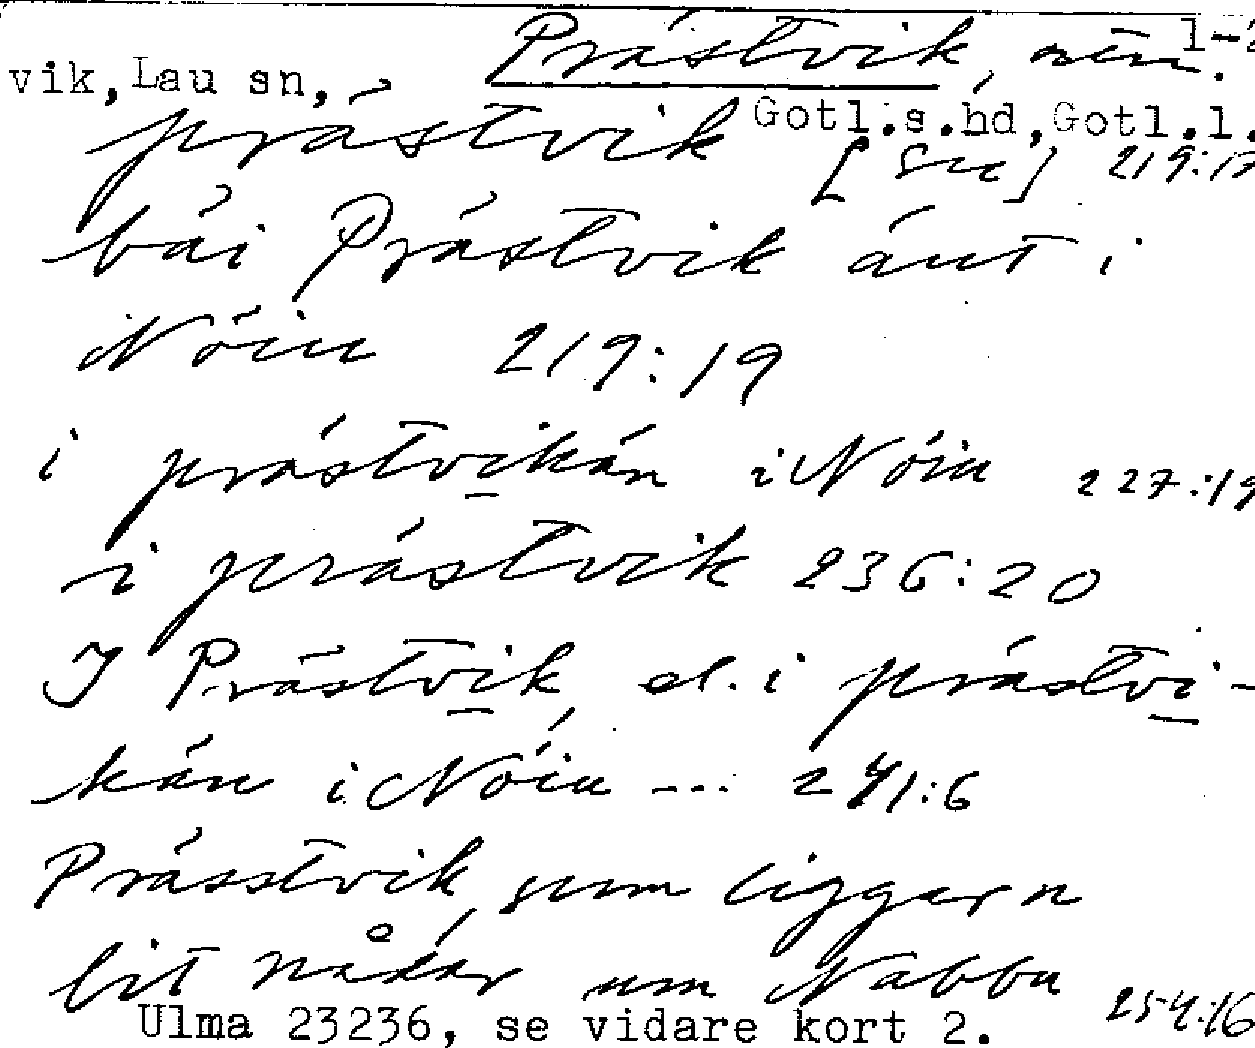 Prástvik, nen. 1-2
vik, Lau sn, Gotl.s.hd, Gotl.l.
prástvik [sic] 219:17
bái Prástvik áut i
Nöiu 219:19
i prástvikán i Nóiu 227:19
i prástvik 236:20
I Prástvik, el. i prástvi-
kán i Nóiu --- 241:6
Prásstvik, sum liggar n
lit nådar um Nabbu 254:16
Ulma 23236, se vidare kort 2.